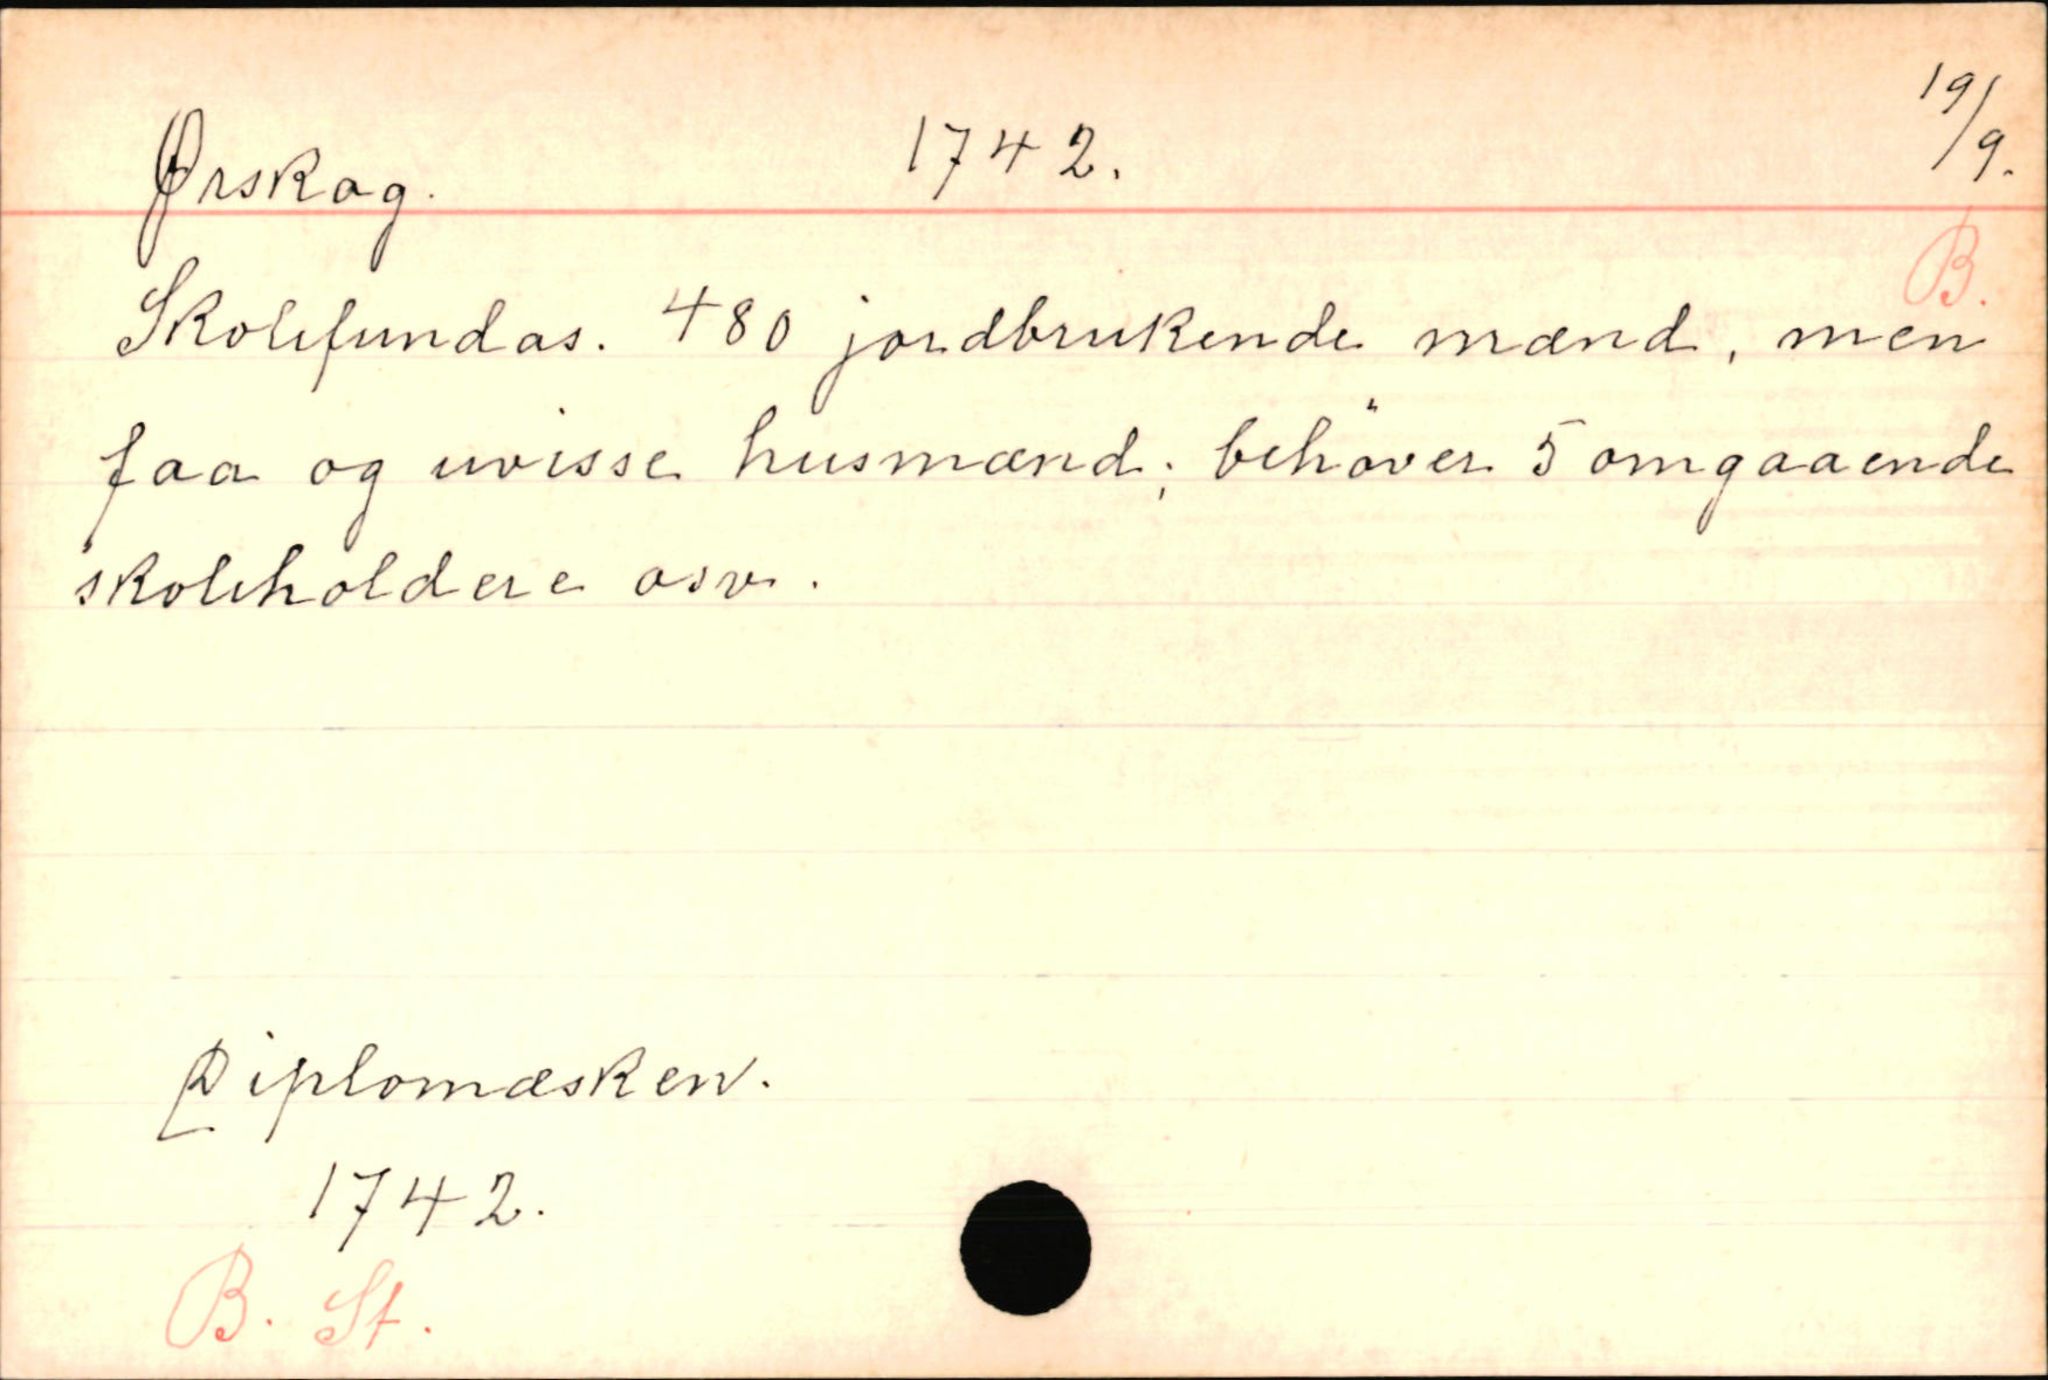 Ørskog. 1742. 19/9.
B.
Skolefundas. 480 jordbrukende mænd, men
faa og uvisse husmænd; behöver 5 omgaaende
skoleholdere osv.
Diplomæsken.
1742.
B. St.